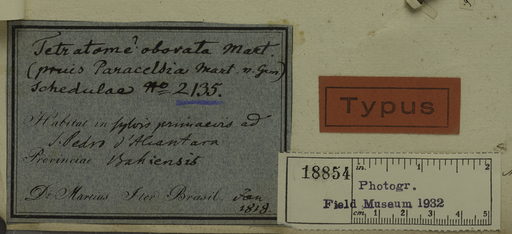 Tetratome? obovata Mart.
(prius Paracelsia Mart. n. Gen)
Schedulae No 2135.
Habitat in sylvis primaevis ad
S. Pedro d'Alcantara
Provinciae Bahiensis
Dr. Martius Iter Brasil. Jan
1819.
Typus
18854
in. 1 2
Photogr.
Field Museum 1932
cm. 1 2 3 4 5